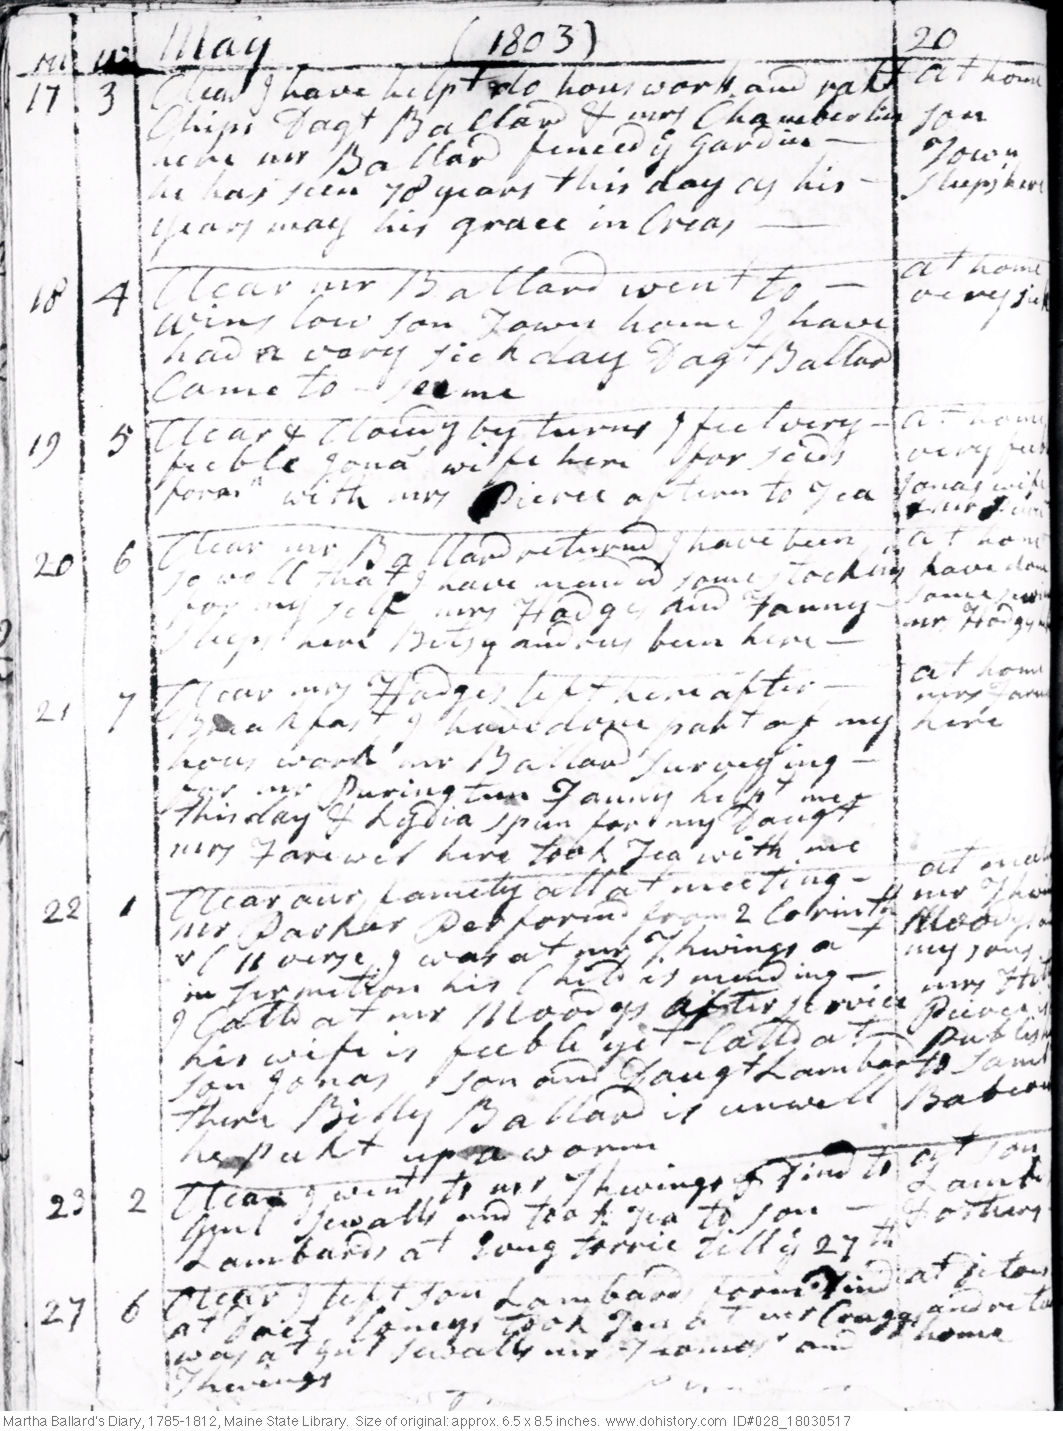 May (1803) 20
17 3 Clear I have helpt do hous work and rakt at home
Chips Dagt Ballard & mrs Chamberlin son
here mr Ballard fenced ye Gardin — Town
he has seen 78 years this day as his — sleeps here
years may his grace in Creas —
18 4 Clear mr Ballard went to — at home
Winslow son Town home I have very sick
had a very sick day Dagt Ballard
Came to see me
19 5 Clear & Cloudy by turns I feel very — at home
feeble Jona wife here for seeds very
foren with mrs Pierce aftern to Tea Jonas wife
20 6 Clear mr Ballard returnd I have been at home
so well that I have mended some stockins have done
for my self mrs Hodges and Fanny — some
sleeps here Betsy andrus been here — mrs Hodges
21 7 Clear mrs Hodges left here after — at home
Breakfast I have done part of my mrs
hous work mr Ballard surveying — here
for mr Purington Fanny helpt me
this day & Lydia spun for my Daugt
mrs Farewel here took Tea with me
22 1 Clear our family all at meeting — at
mr Parker Performd from 2 Corinth mr
& C 11 verse I was at mr Thwings at Moodys
in termition his Child is mending — my sons
I Calld at mr Moodys after service mrs
his wife is feeble yet Calld at — Pierce
son Jonas son and Daugt Lambard Publisht
there Billy Ballard is unwell to
he Pukt up a worm
23 2 Clear I went to mr Thwings & to at son
Gnl Sewalls and took Tea to son —
Lambards at tarrie till ye 27th & others
27 6 Clear I left son Lambards at
at Doct Coneys took Tea at mr Craggs and
was at Gnl Sewalls mr Thomas and home
Thwings
Martha Ballard's Diary, 1785-1812, Maine State Library. Size of original: approx. 6.5 x 8.5 inches. www.dohistory.com ID#028_18030517